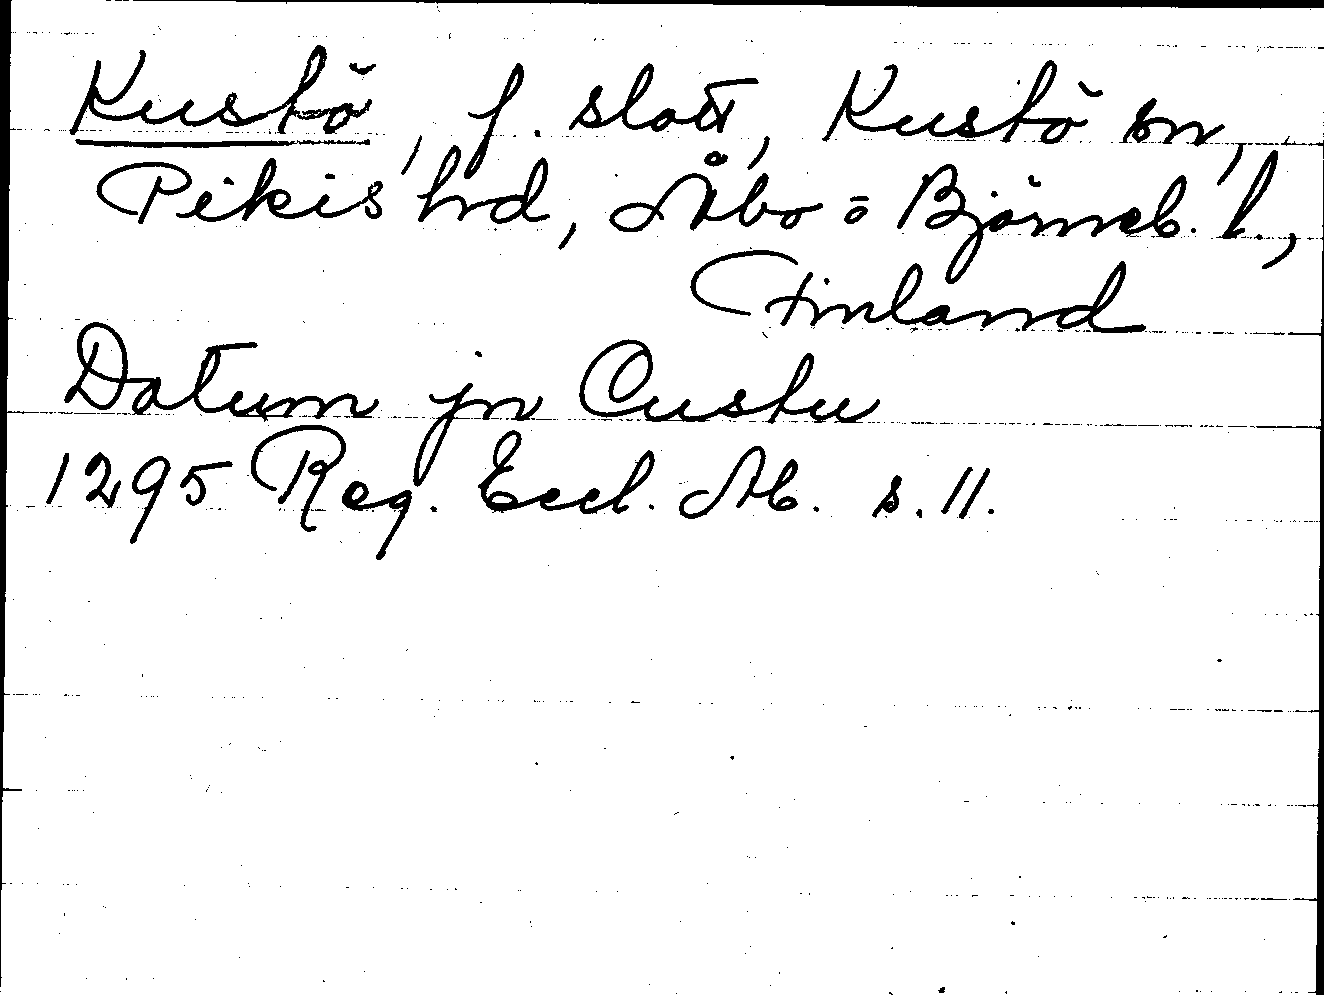 Kustö, f. slott, Kustö sn,
Pikis hrd, Åbo = Björneb. l.,
Finland
Datum jn Custu
1295 Reg. Eccl. Ab. s. 11.